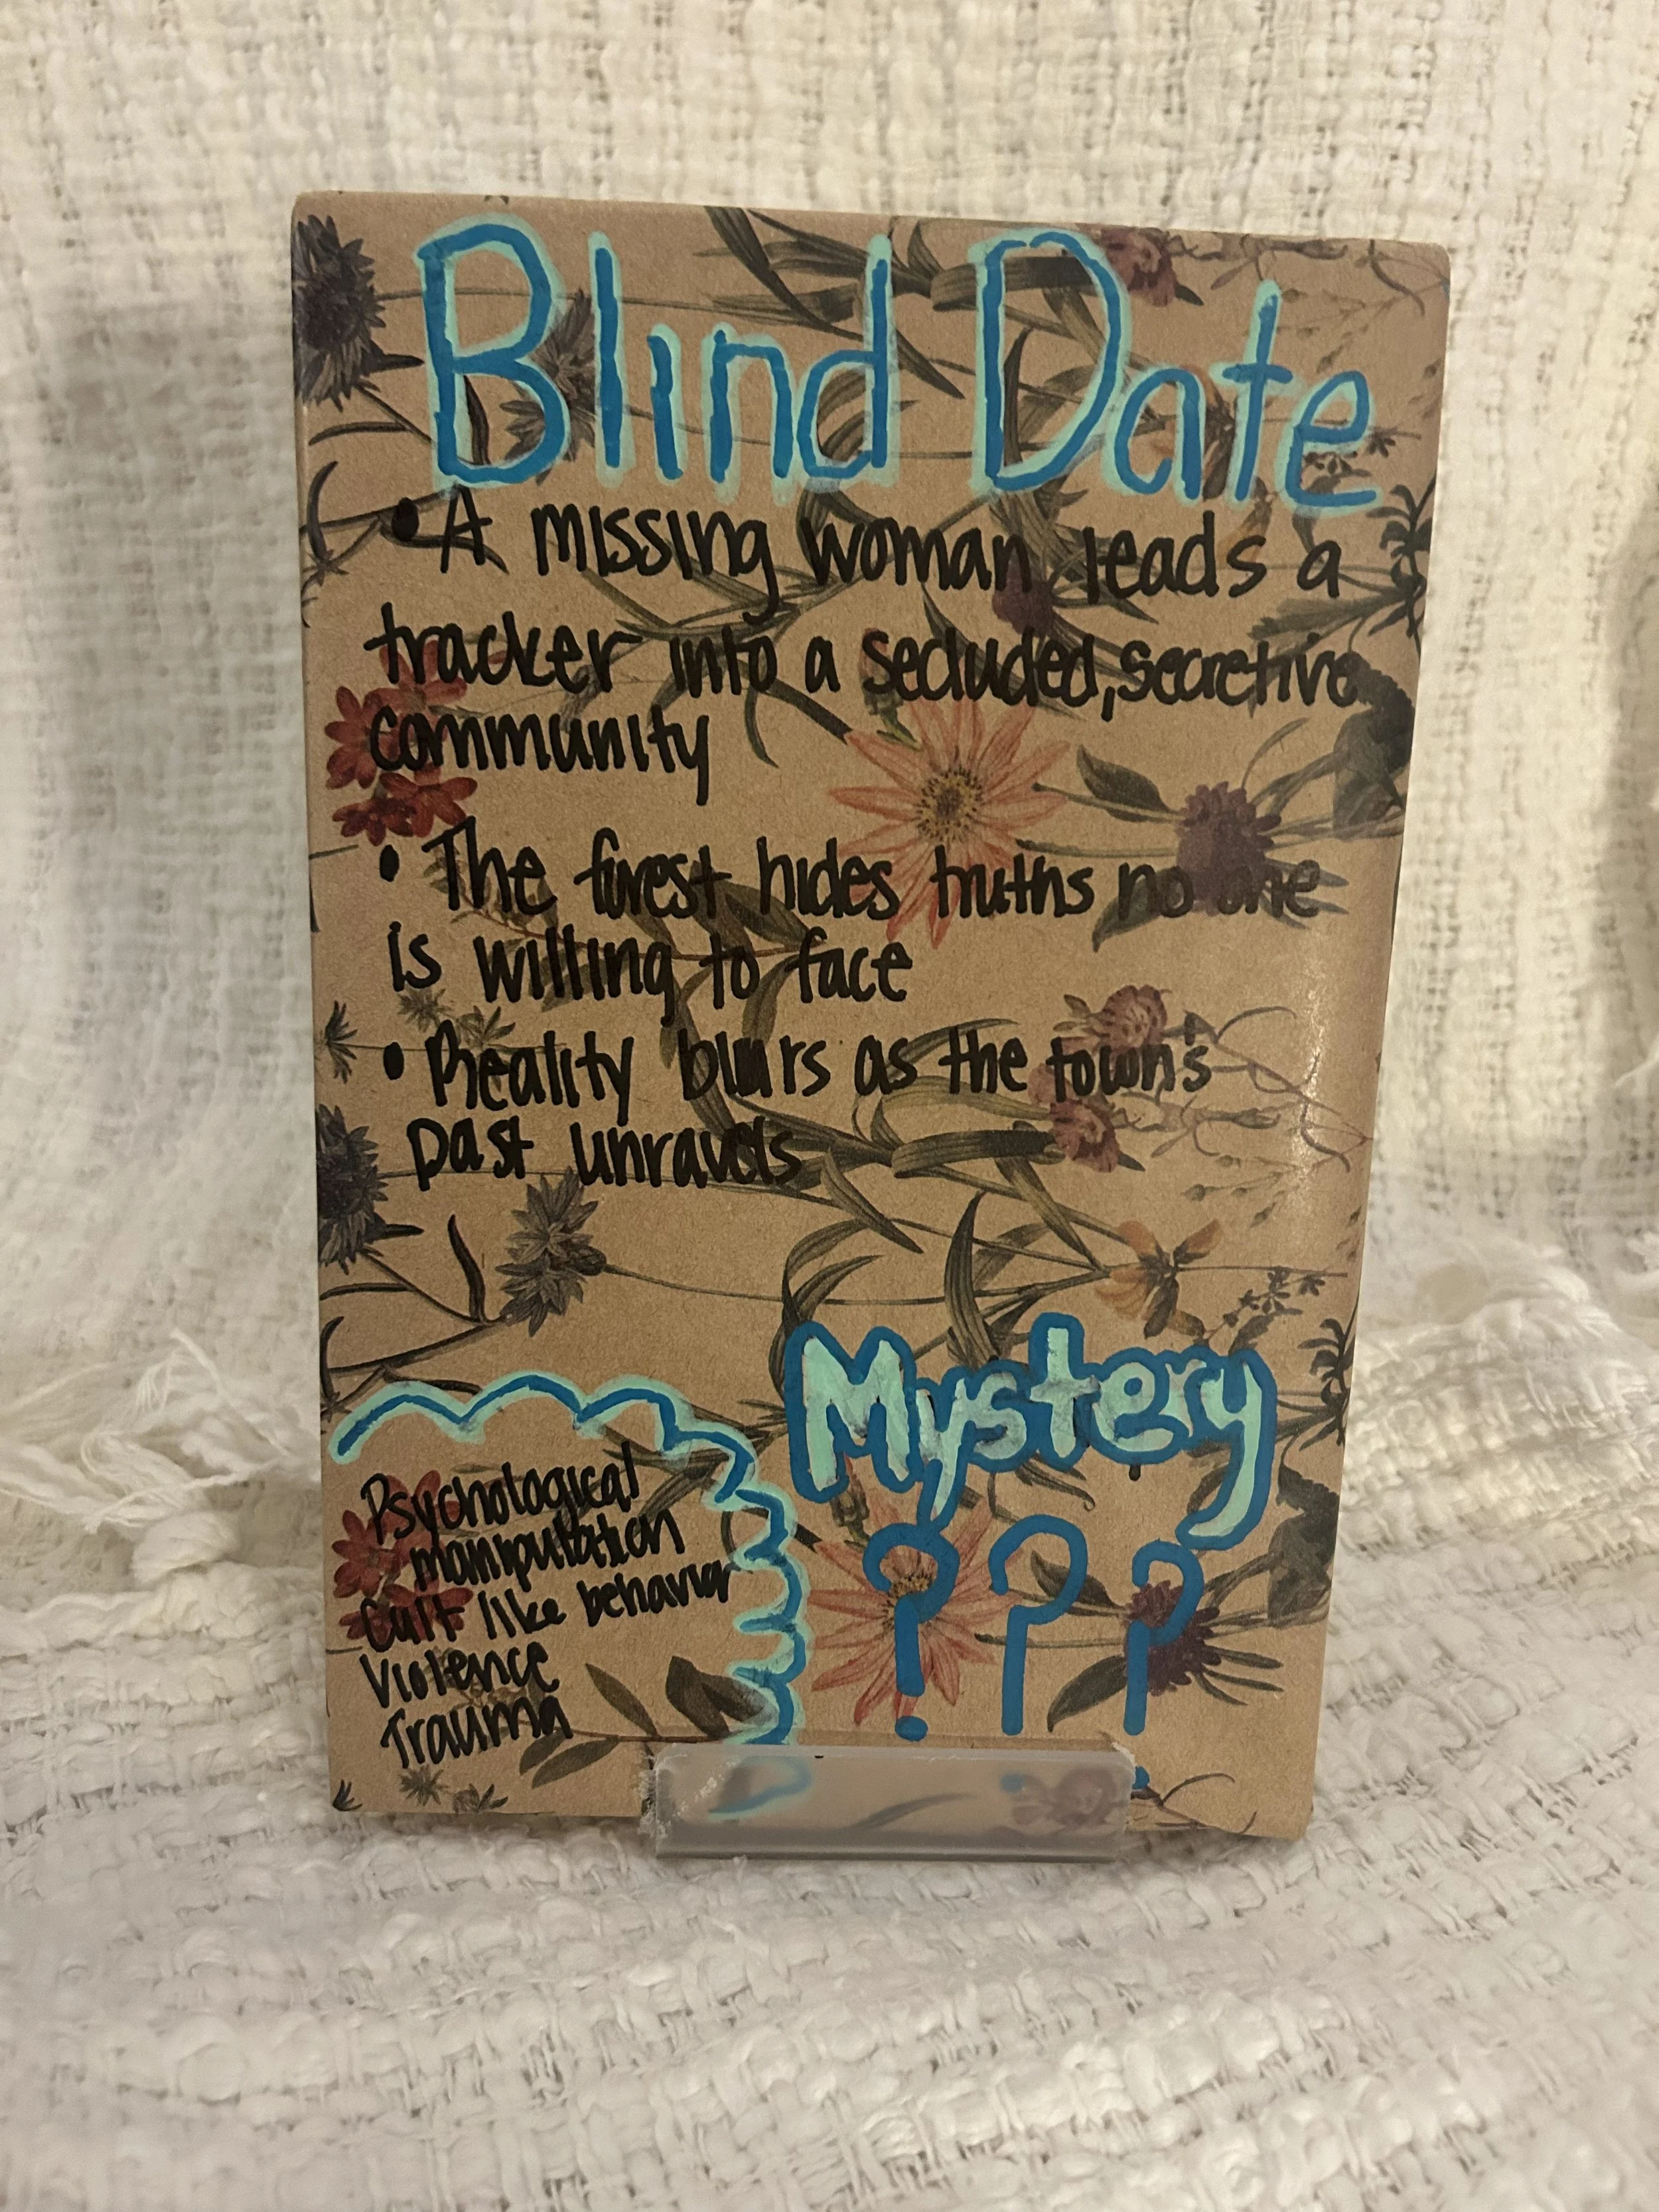 Blind Date
• A missing woman leads a
tracker into a secluded, secretive
community
• The forest hides truths no one
is willing to face
• Reality blurs as the town's
past unravels
Mystery
???
Psychological
manipulation
Cult like behavior
Violence
Trauma